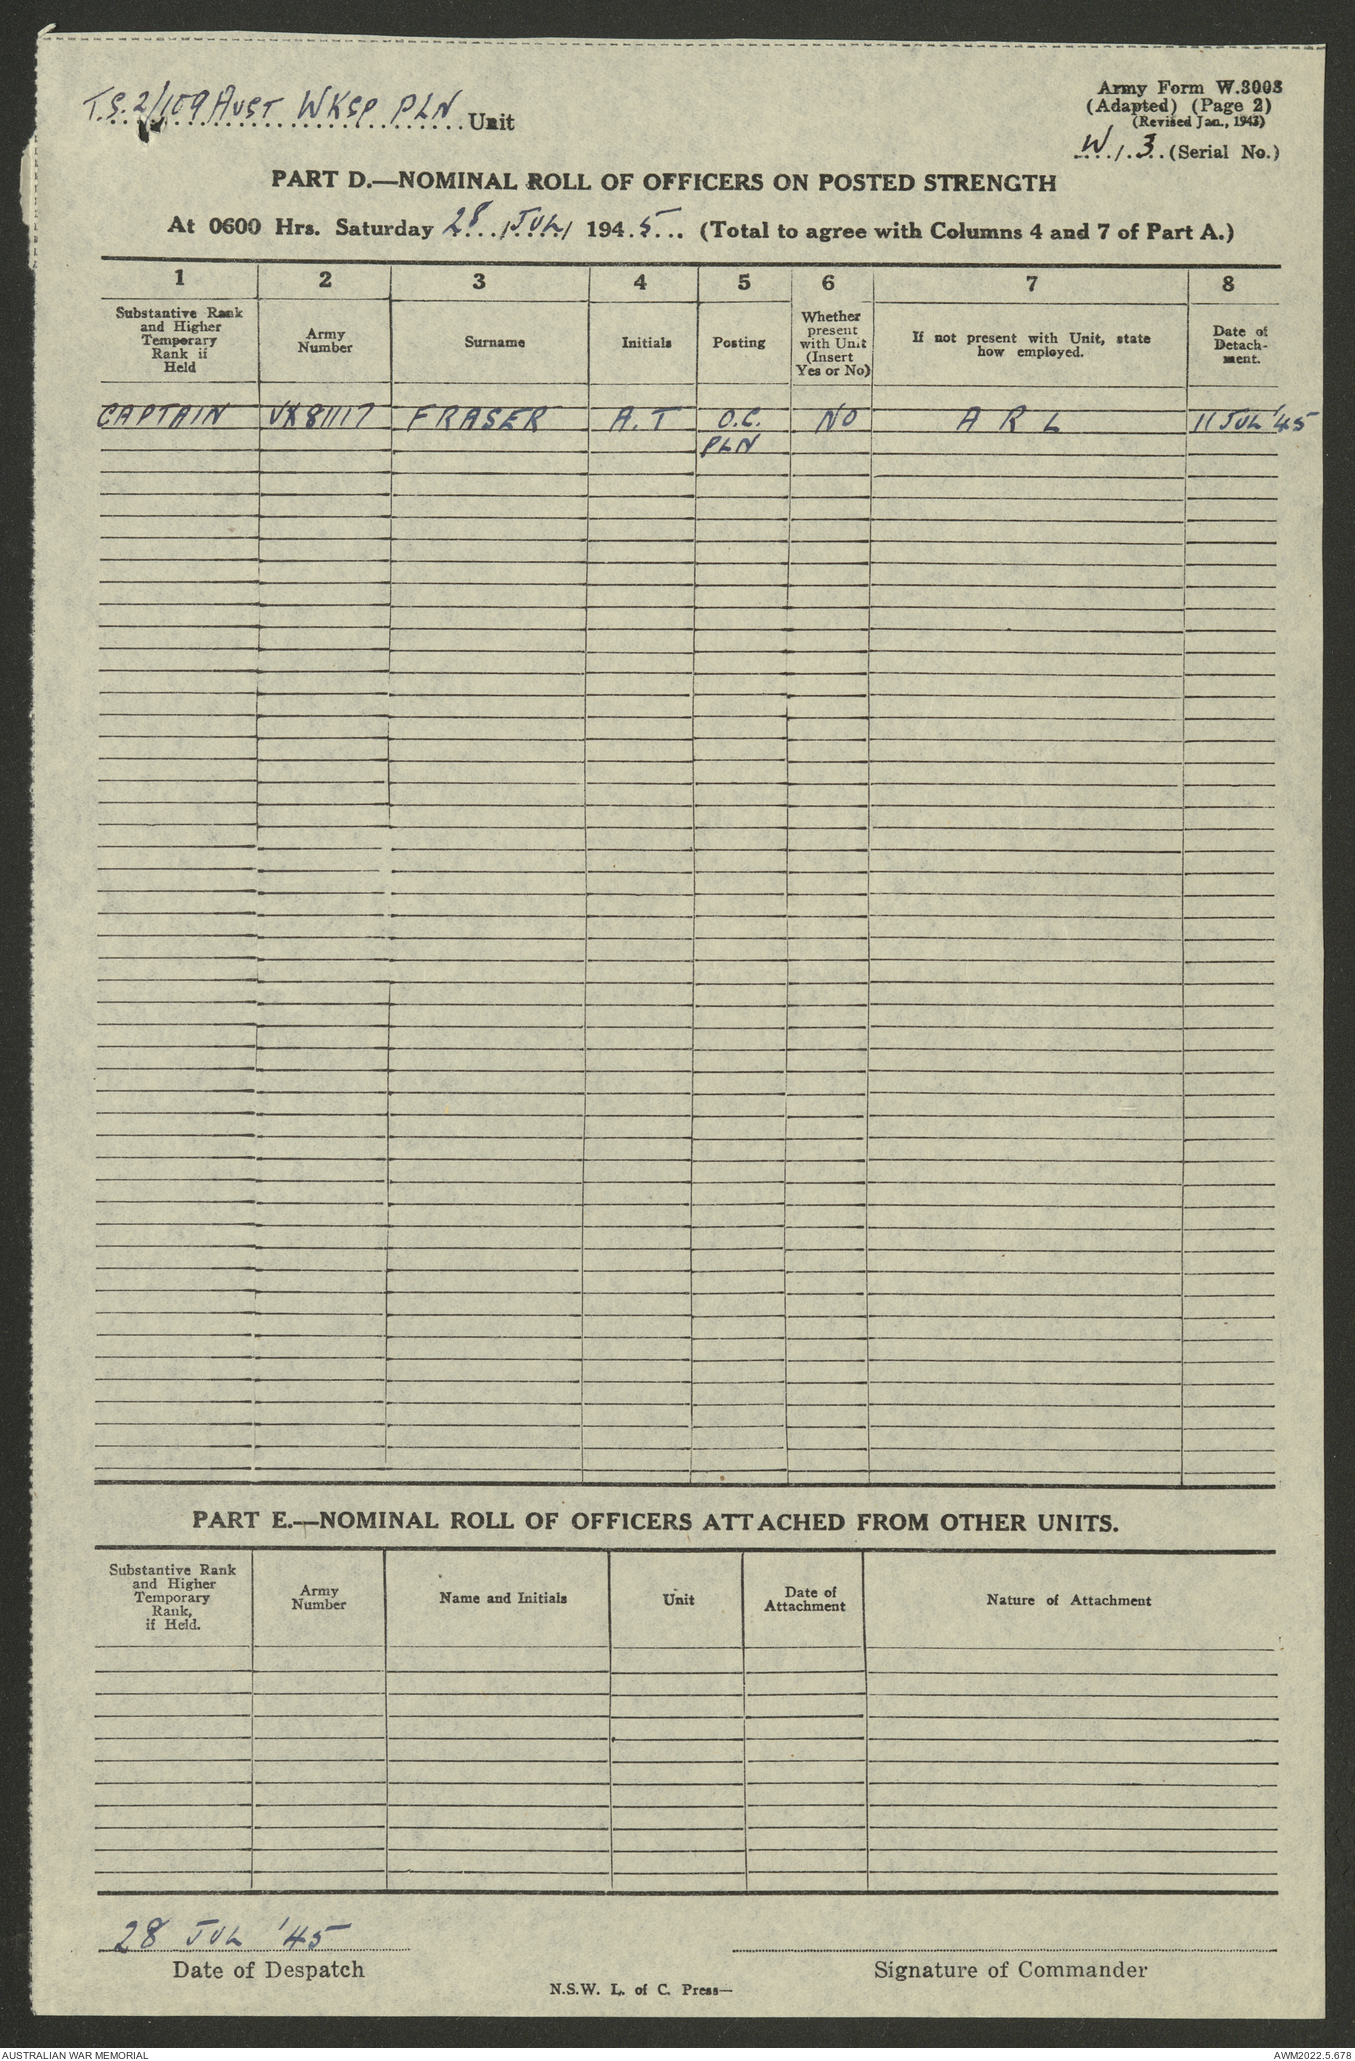 T.S. 2/109 AUST WKSP PLN Unit
Army Form W.3008
(Adapted) (Page 2)
(Revised Jan., 1943)
W / 3 (Serial No.)
PART D.—NOMINAL ROLL OF OFFICERS ON POSTED STRENGTH
At 0600 Hrs. Saturday 28 / JUL / 1945 (Total to agree with Columns 4 and 7 of Part A.)
1 2 3 4 5 6 7 8
Substantive Rank and Higher Temporary Rank if Held
Army Number
Surname
Initials
Posting
Whether present with Unit (Insert Yes or No)
If not present with Unit, state how employed.
Date of Detachment.
CAPTAIN VX81117 FRASER A.T O.C. NO A R L 11 JUL '45
PLN
PART E.—NOMINAL ROLL OF OFFICERS ATTACHED FROM OTHER UNITS.
Substantive Rank and Higher Temporary Rank, if Held.
Army Number
Name and Initials
Unit
Date of Attachment
Nature of Attachment
28 JUL '45
Date of Despatch
Signature of Commander
N.S.W. L. of C. Press—
AUSTRALIAN WAR MEMORIAL
AWM2022.5.678